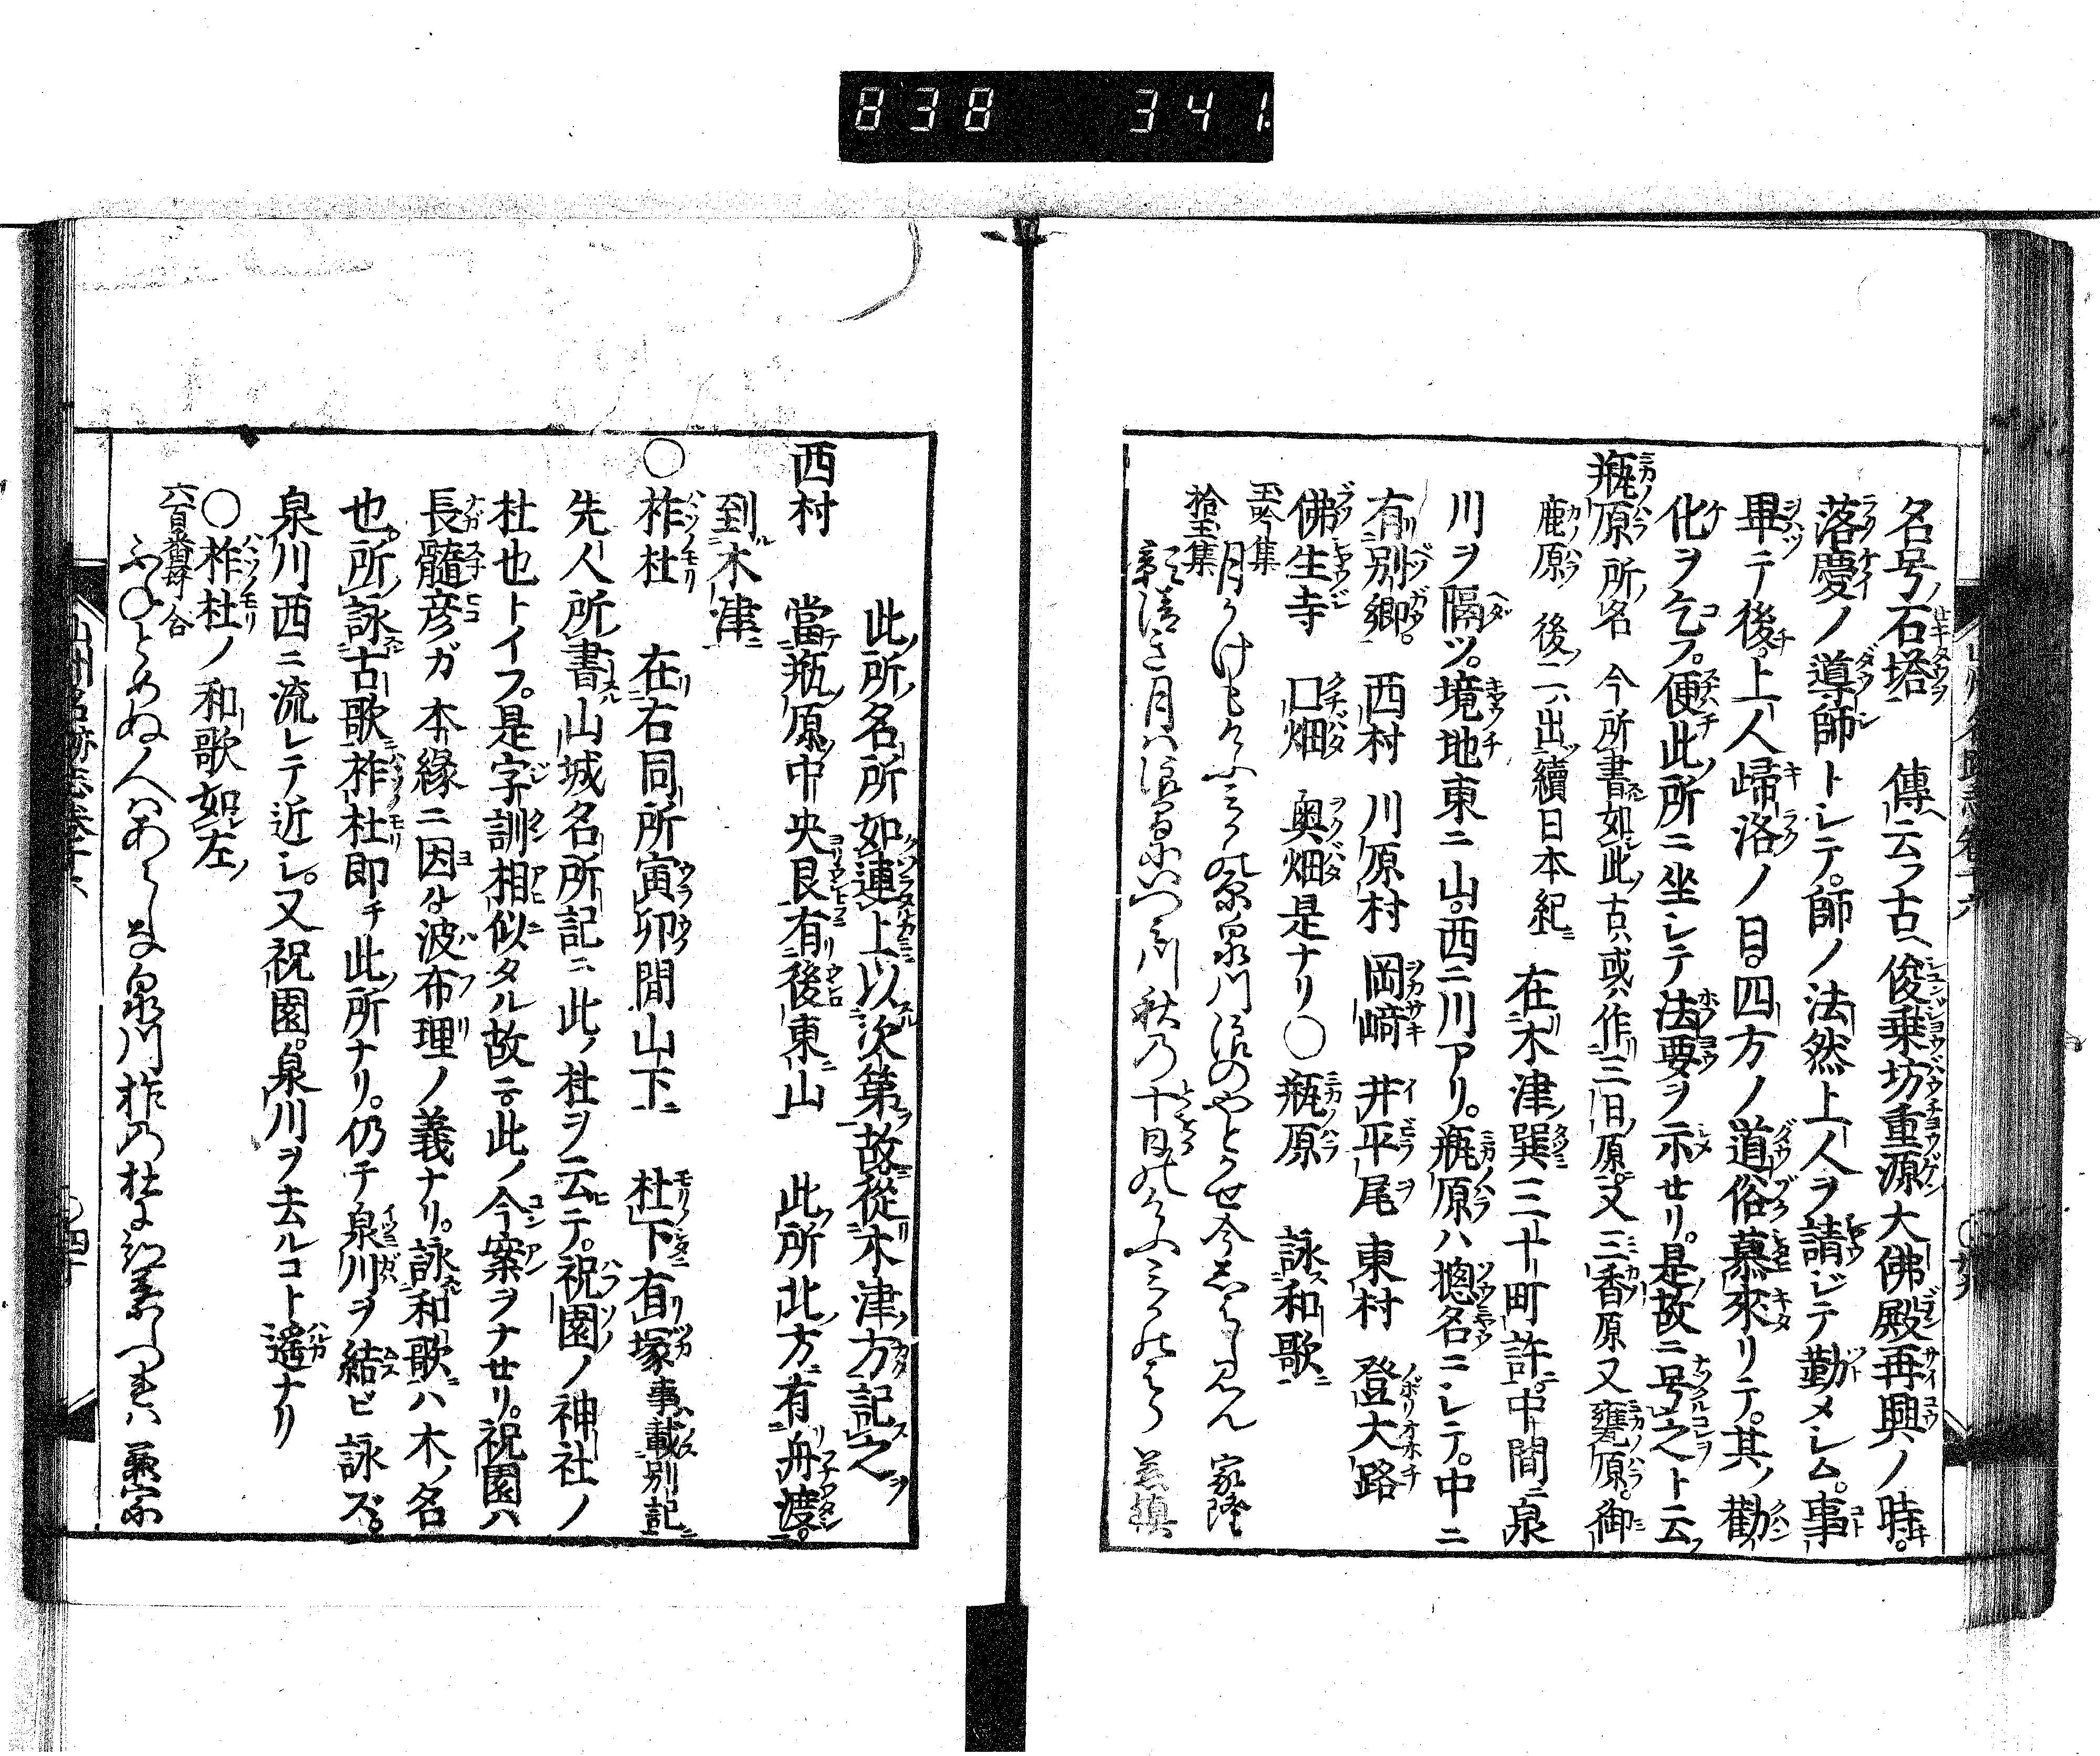 838 341
名号石塔 傳云フ古ヘ俊乗坊重源大佛殿再興ノ時
落慶ノ導師トシテ師ノ法然上人ヲ請ジテ勤メシム事
畢テ後上人歸洛ノ日四方ノ道俗慕來リテ其ノ勸
化ヲ乞フ便此所ニ坐シテ法要ヲ示セリ是故ニ号之ト云フ
瓶原 所ノ名 今所書如此古ハ或ハ作三日ノ原又三香原又甕原御
鹿原 後ノ二ハ出續日本紀ニ 在木津ノ巽三十町許中間ニ泉
川ヲ隔ツ境地東ニ山西ニ川アリ瓶原ハ惣名ニシテ中ニ
有別郷 西村 川原村 岡﨑 井平尾 東村 登大路
佛生寺 口畑 奥畑是ナリ〇瓶原 詠和歌ニ
玉吟集
家隆
拾玉集
慈鎮
此所ノ名所如連上以次第故從木津ノ方記之
西村 當瓶原ノ中央艮有後東山 此所北ノ方有舟渡
到木津
〇柞杜 在右同所寅卯間山下ニ 杜ノ下有塚事ハ載別記
先人所書山城名所記ニ此ノ杜ヲ云テ祝園ノ神社ノ
杜也トイフ是字訓相似タル故ニ此ノ今案ヲナセリ祝園ハ
長髓彦ガ本緣ニ因ル波布理ノ義ナリ詠和歌ハ木ノ名
也所詠古歌柞杜即チ此ノ所ナリ仍チ泉川ヲ結ビ詠ズ
泉川西ニ流レテ近シ又祝園泉川ヲ去ルコト遙ナリ
〇柞杜ノ和歌如左
六百番歌合
山州名跡志巻十六